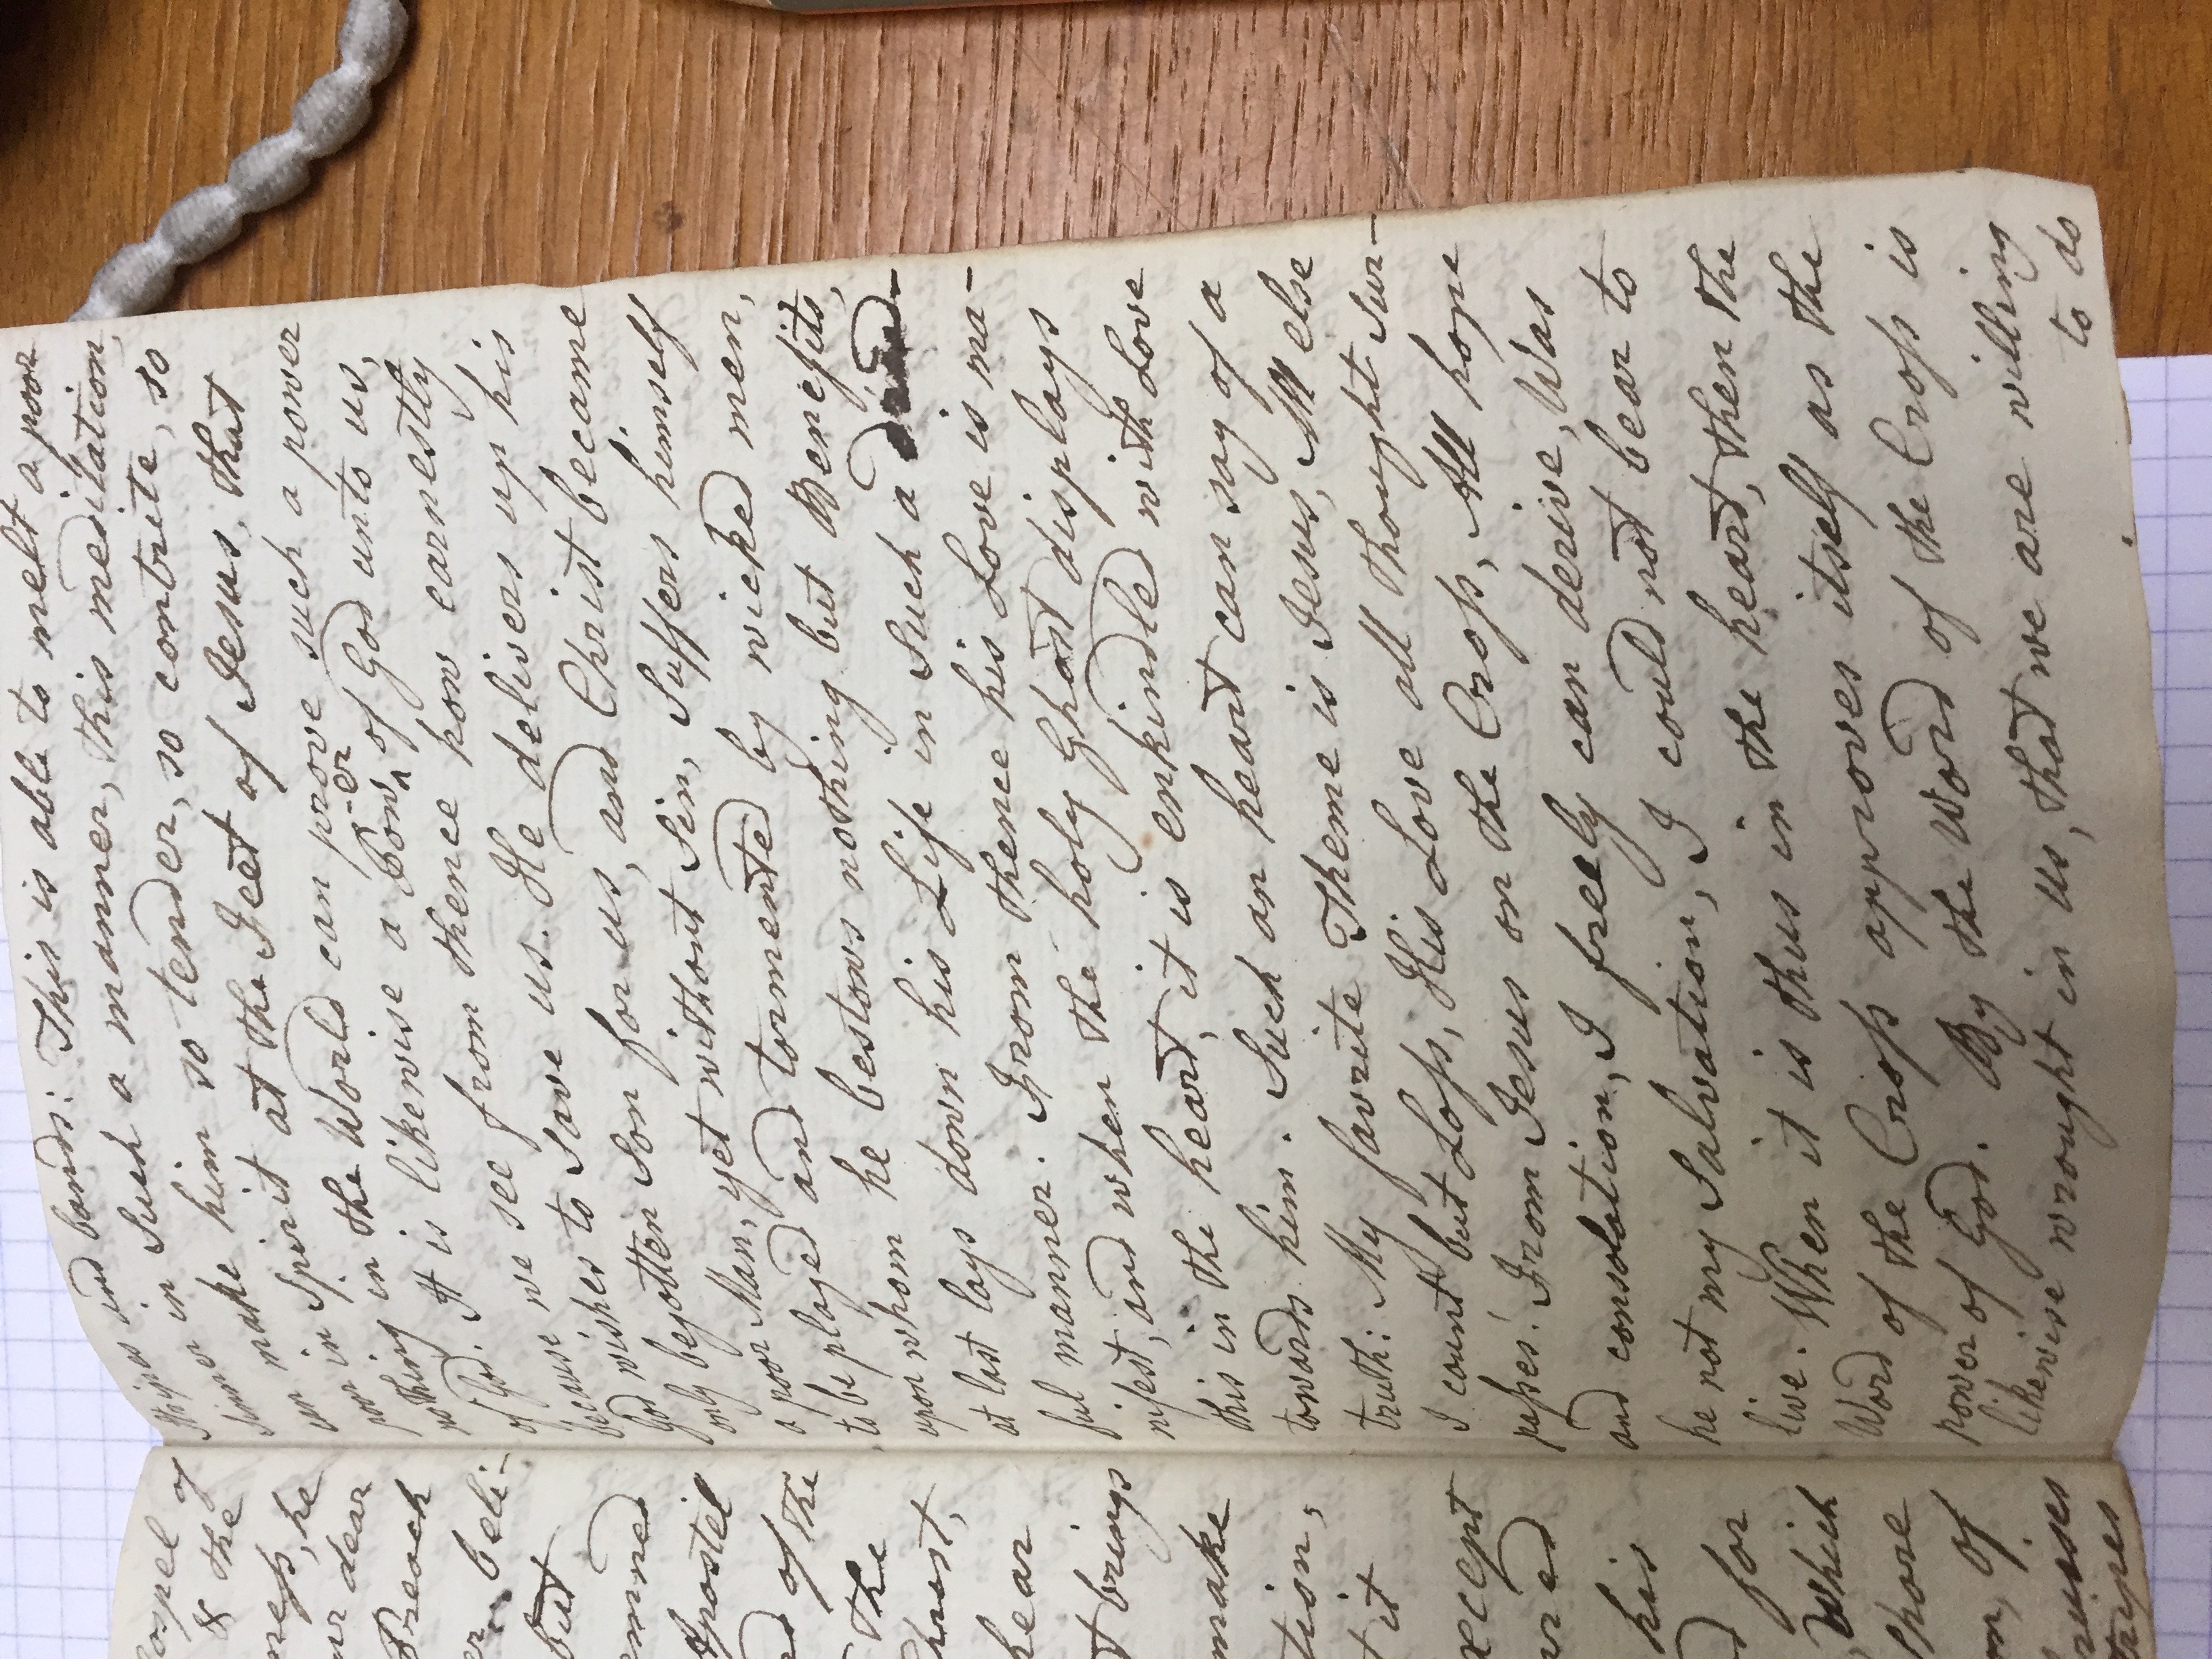 ospel of
& the
neſs, he
ur dear
Preach
er beli-
but
emned
Apostel
ed of the
the
Christ,
hear
t brings
make
tion,
t it
except
red
his
d for
, which
Share
on, of
bruises
Stripes
Stripes and bands: This is able to melt a poor
Sinner in Such a manner, this meditation
can make him so tender, so contrite, so
poor in Spirit at the Feet of Jesus, that
nothing in the World can prove such a power
of God. It is likewise a Pow^-er of God unto us,
because we see from thence how earnestly
God wishes to Save us. He delivers up his
only begotten Son for us, and Christ became
a poor Man, yet without Sin, Suffers himself
to be plaged and tormented by wicked men,
upon whom he bestows nothing but Benefits,
at last lays down his Life in Such a dread-
ful manner. From thence his Love is ma-
nifest, and when the holy Ghost displays
this in the heart, it is enkindled with Love
towards him. Such an heart can say of a
truth: My favrite Theme is Jesus, All else
I count but Loſs, His Love all thought Sur-
paſses! From Jesus on the Croſs, All hope
and consolation, I freely can derive, Was
he not my Salvation, I could not bear to
live. When it is thus in the heart, then the
Word of the Croſs approves itself as the
power of God. By the Word of the Croſs is
likewise wrought in us, that we are willing
to do